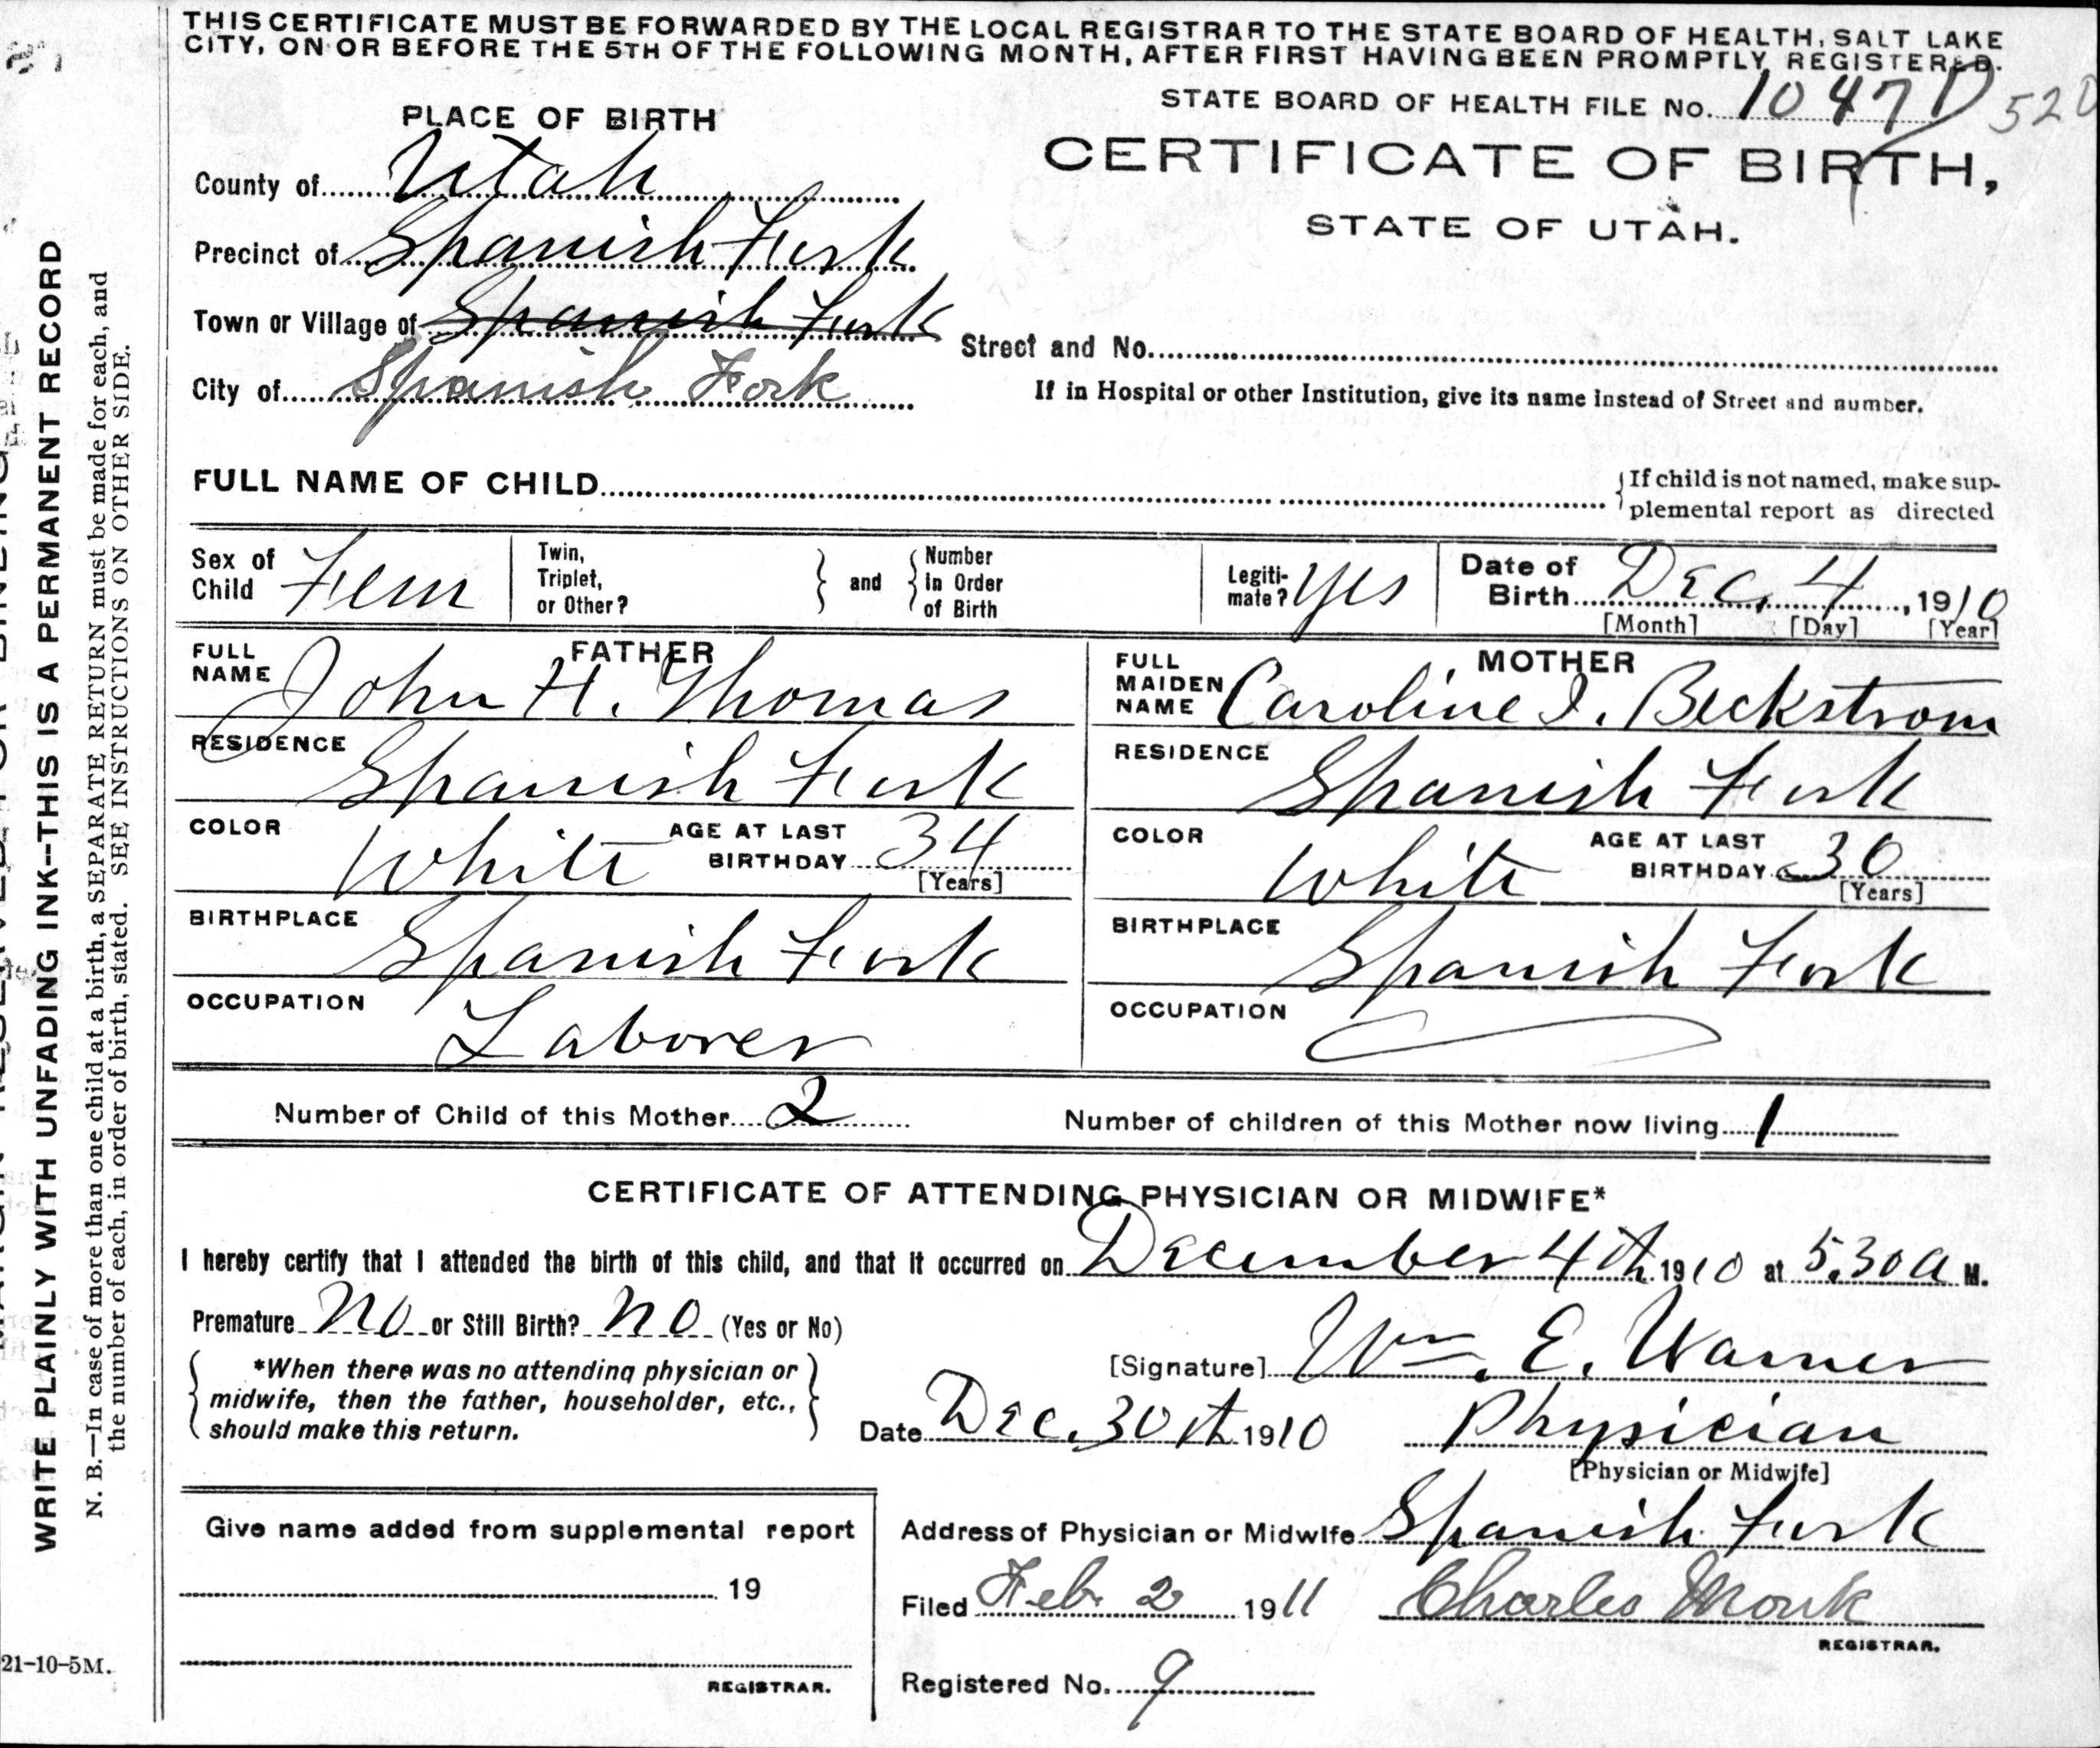 THIS CERTIFICATE MUST BE FORWARDED BY THE LOCAL REGISTRAR TO THE STATE BOARD OF HEALTH, SALT LAKE
CITY, ON OR BEFORE THE 5TH OF THE FOLLOWING MONTH, AFTER FIRST HAVING BEEN PROMPTLY REGISTERED.
STATE BOARD OF HEALTH FILE No. 1047 D 520
PLACE OF BIRTH
CERTIFICATE OF BIRTH,
STATE OF UTAH.
County of Utah
Precinct of Spanish Fork
Town or Village of Spanish Fork
Street and No.
City of Spanish Fork
If in Hospital or other Institution, give its name instead of Street and number.
FULL NAME OF CHILD
If child is not named, make sup-
plemental report as directed
Sex of Child Fem
Twin, Triplet, or Other?
and
Number in Order of Birth
Legiti-mate? Yes
Date of Birth Dec. 4, 1910
[Month] [Day] [Year]
FATHER
FULL NAME John H. Thomas
RESIDENCE Spanish Fork
COLOR White AGE AT LAST BIRTHDAY 34
[Years]
BIRTHPLACE Spanish Fork
OCCUPATION Laborer
MOTHER
FULL MAIDEN NAME Caroline I. Beckstrom
RESIDENCE Spanish Fork
COLOR White AGE AT LAST BIRTHDAY 30
[Years]
BIRTHPLACE Spanish Fork
OCCUPATION
Number of Child of this Mother 2
Number of children of this Mother now living 1
CERTIFICATE OF ATTENDING PHYSICIAN OR MIDWIFE*
I hereby certify that I attended the birth of this child, and that it occurred on December 4th 1910 at 5.30 a M.
Premature No or Still Birth? No (Yes or No)
*When there was no attending physician or
midwife, then the father, householder, etc.,
should make this return.
[Signature] Wm. E. Warner
Date Dec. 30th 1910
Physician
[Physician or Midwife]
Give name added from supplemental report
19
REGISTRAR.
Address of Physician or Midwife Spanish Fork
Filed Feb. 2 1911 Charles Monk
REGISTRAR.
Registered No. 9
WRITE PLAINLY WITH UNFADING INK--THIS IS A PERMANENT RECORD
N. B.—In case of more than one child at a birth, a SEPARATE RETURN must be made for each, and
the number of each, in order of birth, stated. SEE INSTRUCTIONS ON OTHER SIDE.
21-10-5M.